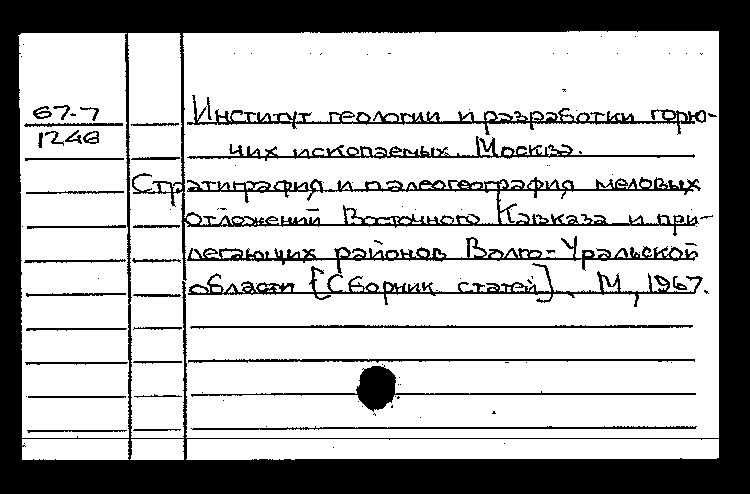 67-7
1246
Институт геологии и разработки горю-
чих ископаемых. Москва.
Стратиграфия и палеогеография меловых
отложений Восточного Кавказа и при-
легающих районов Волго-Уральской
области [Сборник статей]. М., 1967.